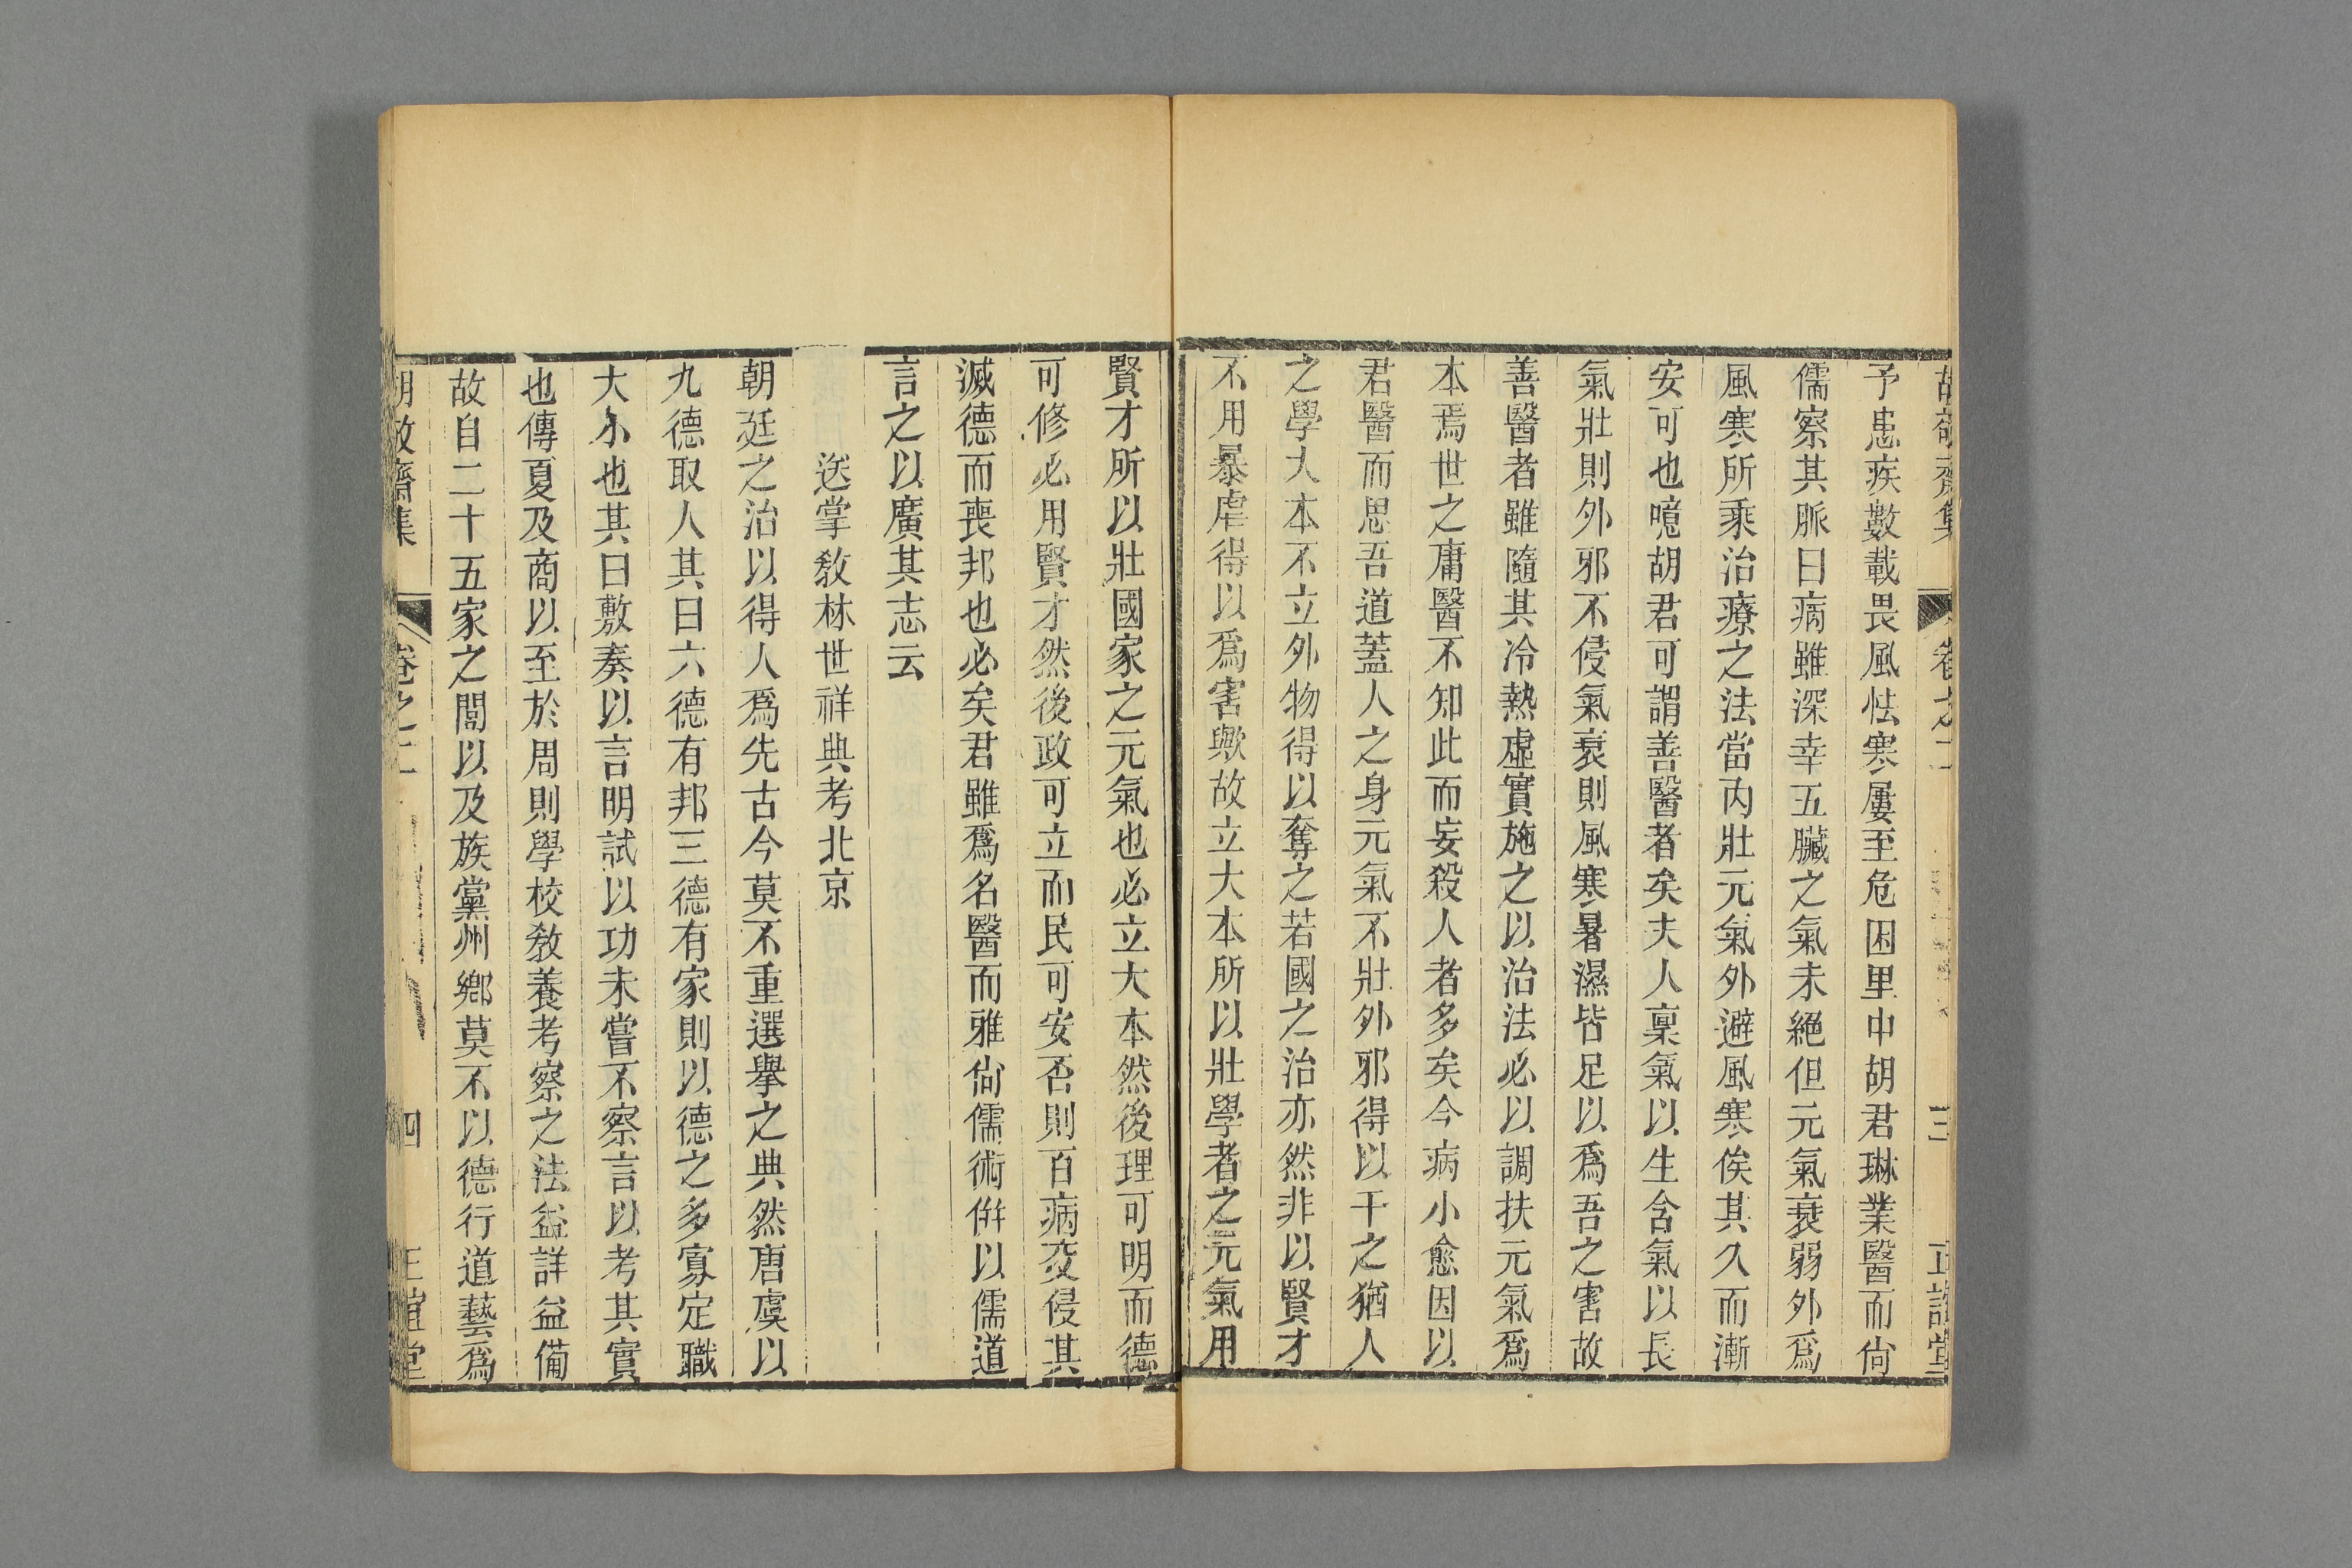 胡敬齋集 卷之二 三 正誼堂
予患疾數載畏風怯寒屢至危困里中胡君琳業醫而尙
儒察其脈曰病雖深幸五臟之氣未絕但元氣衰弱外爲
風寒所乘治療之法當內壯元氣外避風寒俟其久而漸
安可也噫胡君可謂善醫者矣夫人稟氣以生含氣以長
氣壯則外邪不侵氣衰則風寒暑濕皆足以爲吾之害故
善醫者雖隨其冷熱虛實施之以治法必以調扶元氣爲
本焉世之庸醫不知此而妄殺人者多矣今病小愈因以
君醫而思吾道蓋人之身元氣不壯外邪得以干之猶人
之學大本不立外物得以奪之若國之治亦然非以賢才
不用暴虐得以爲害歟故立大本所以壯學者之元氣用
賢才所以壯國家之元氣也必立大本然後理可明而德
可修必用賢才然後政可立而民可安否則百病交侵其
滅德而喪邦也必矣君雖爲名醫而雅尙儒術併以儒道
言之以廣其志云
送掌敎林世祥典考北京
朝廷之治以得人爲先古今莫不重選舉之典然唐虞以
九德取人其曰六德有邦三德有家則以德之多寡定職
大小也其曰敷奏以言明試以功未嘗不察言以考其實
也傳夏及商以至於周則學校敎養考察之法益詳益備
故自二十五家之閭以及族黨州鄉莫不以德行道藝爲
胡敬齋集 卷之二 四 正誼堂